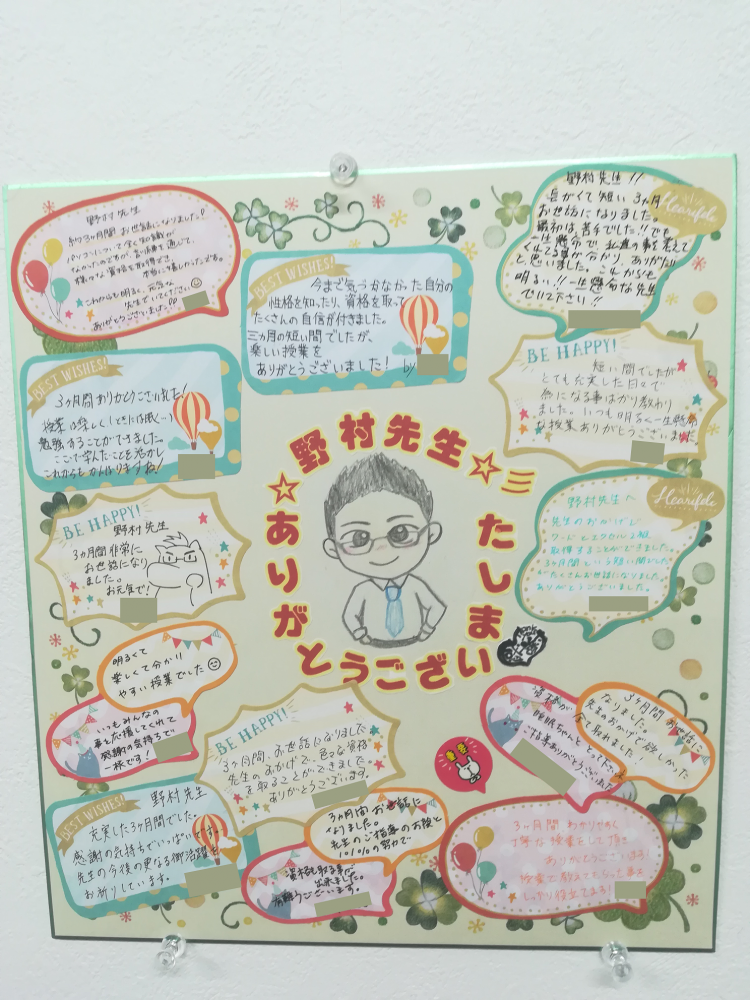 野村先生
約3ヶ月間お世話になりました!
パソコンについて全く知識が
なかったのですが、
ありがとうございました
BEST WISHES!
今まで気づかなかった自分の
性格を知ったり、資格を取って
たくさんの自信が付きました。
三ヵ月の短い間でしたが、
楽しい授業を
ありがとうございました!
by
野村先生!!
長がくて短い3ヶ月
お世話になりました。
最初は、苦手でした!!でも
一生懸命で、
くれてる事が分かり、ありがたい
と思いました。これからも
明るい!!一生懸命な先生
でいて下さい!!
Heartfelt
BEST WISHES!
3ヶ月間ありがとうございました!
勉強することができました。
ここで学んだことを活かし
これからもがんばりますね!
BE HAPPY!
短い間でしたが
とても充実した日々で
為になる事ばかり教わり
ました。いつも明るく一生懸命
な授業ありがとうございました
☆野村先生☆三
ありがとうございいたしま
BE HAPPY!
野村先生
3ヵ月間非常に
お世話になり
ました。
お元気で!
Heartfelt
野村先生へ
先生のおかげで
ワードとエクセル2級
取得することができました。
3ヶ月間という短い間でした
がたくさんお世話になりました。
ありがとうございました。
明るくて
楽しくて分かり
やすい授業でした
いつもみんなの
事を応援してくれて
感謝の気持ちで
一杯です!
BE HAPPY!
3ヶ月間、お世話になりました
先生のおかげで、色々な資格
を取ることができました
ありがとうございます。
3ヶ月間お世話に
なりました。
先生のおかげで欲しかった
資格が
全て取れました!
睡眠ちゃんととって下さいね
ご指導ありがとうございました
BEST WISHES!
野村先生
充実した3ヶ月間でした。
感謝の気持ちでいっぱいです。
先生の今後の更なる御活躍を
お祈りしています。
3ヵ月間お世話に
なりました。
先生のご指導のお陰と
1010%の努力で
資格も取る事が
出来ました。
有難うございます。
3ヶ月間わかりやすく
丁寧な授業をして頂き
ありがとうございます!
授業で教えてもらった事を
しっかり役立てます!